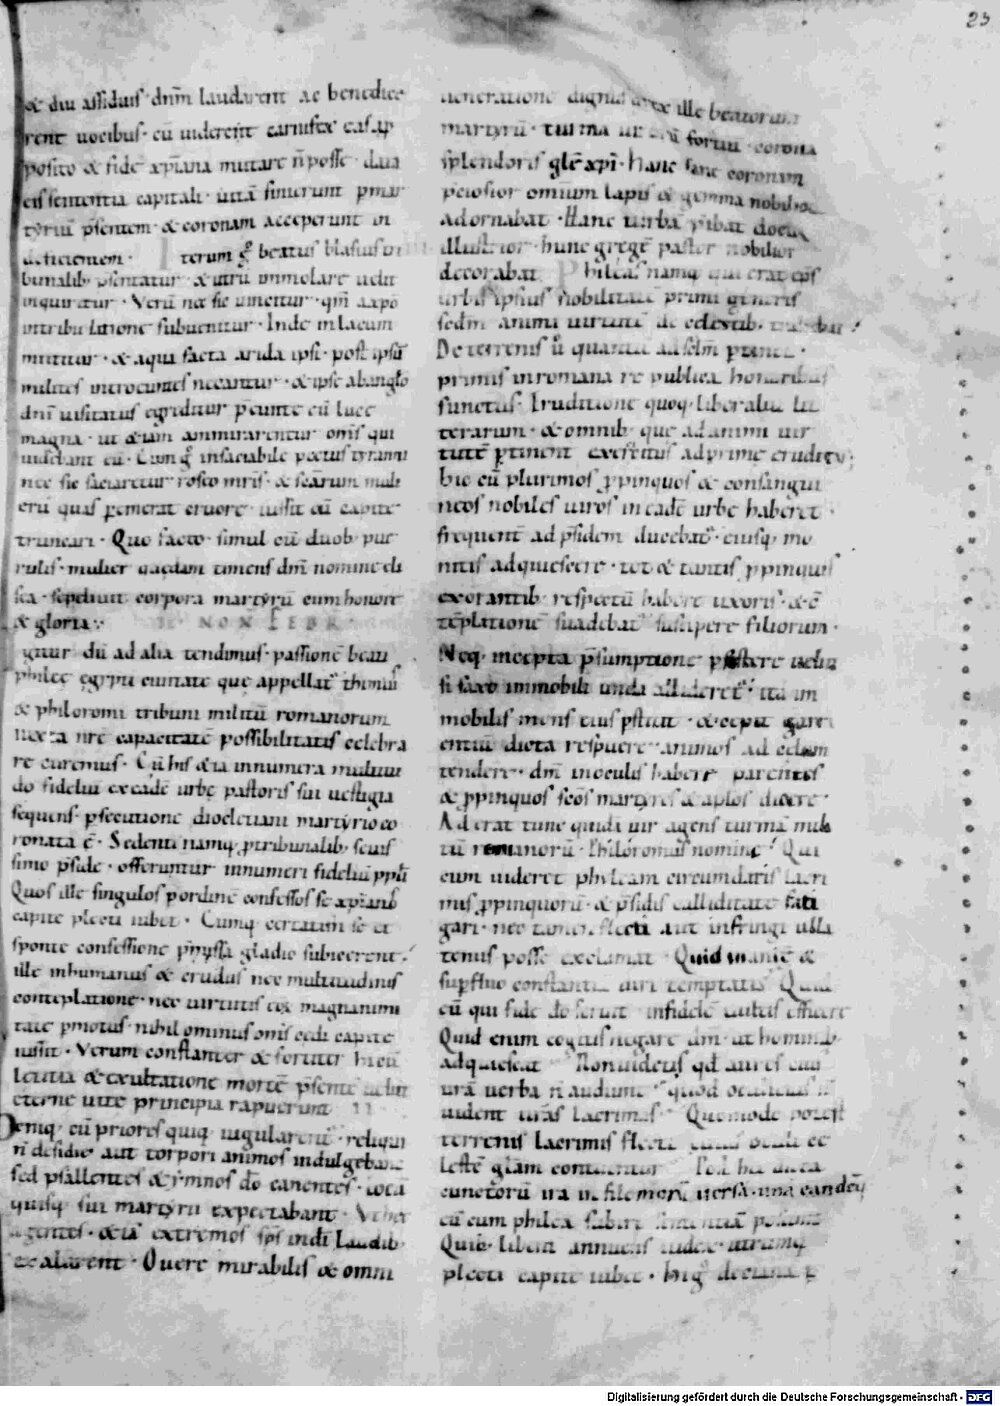 23
& diu assiduis · dnm̄ laudarent ac benedice
rent uocibus · cū uiderent carnifex eas a p
posito & fide xpīana mutare n̄ posse · data
eis sententia capitali · uitā finierunt p mar
tyriū p̄sentem · & coronam acceperunt in
deficientem · Iterum gͦ beatus blasius tri
bunalib; p̄sentatur · & utrū immolare uelit
inquiratur · Verū nec sic uincitur · qm̄ a xpō
in tribulatione subuenitur · Inde in lacum
mittitur · & aqua facta arida ipsi · post ipsū
milites introeuntes necantur · & ipse ab anglo
dnī uisitatus egreditur p̄eunte eū luce
magna · ut etiam ammirarentur oms̄ qui
uidebant eū · Cum gͦ insaciabile pectus tyranni
nec sic saciaretur rosco mris̄ · & sc̄arum muli
erū quas peremerat cruore · iussit eū capite
truncari · Quo facto · simul cū duob; pue
rulis · mulier quedam timens dm̄ nomine eli
sea · sepeliuit corpora martyrū cum honore
& gloria · II NON FEBR
gitur dū ad alia tendimus · passionē beati
philee egypti ciuitate que appellatᷣ thimuis
& philoromi tribuni militū romanorum
iuxta nrē capacitatē possibilitatis celebra
re curemus · Cū his etiā innumera multitu
do fideliū ex eadē urbe pastoris sui uestigia
sequens · p̄secutione diocletiani martyrio co
ronata ē · Sedenti namq; p tribunalib; seuis
simo p̄side · offeruntur innumeri fideliū ppl̄i
Quos ille singulos p ordinē confessos se xpīanos
capite plecti iubet · Cumq; certatim se et
sponte confessione p̄myssa gladio subicerent ·
ille inhumanus & crudus nec multitudinis
contēplatione · nec uirtutis eoꝝ magnanimi
tate p̄motus · nihilominus oms̄ cedi capite
iussit · Verum constanter & fortiter hi cū
letitia & exultatione mortē p̄sentē uelut
eterne uite principia rapuerunt
Deniq; cū priores quiq; iugularent · reliqui
n̄ desidie aut torpori animos indulgebant
sed psallentes & ymnos dō canentes · locū
quisq; sui martyrii expectabant · Vt ben
agentes · & iā extremos sps̄ in dī laudib;
exalarent · O uere mirabilis & omni
ueneratione dignus grex ille beatorum
martyrū · turma uirorū fortiū · corona
splendoris glē xpī · Hanc sane coronam
p̄ciosior omnium lapis & gemma nobilior
adornabat · Hanc turbā p̄ibat doctor
illustrior · hunc gregē pastor nobilior
decorabat · Phileas namq; qui erat ep̄s
urbis ipsius nobilitate primi generis
sedm̄ animi uirtutē de celestib; trahebat ·
De terrenis ū quantū ad sclm̄ ptinet ·
primis in romana re publica honoribus
functus · Eruditione quoq; liberaliū lit
terarum · & omnib; que ad animi uir
tutē ptinent exercitus adprime eruditus;
hic cū plurimos ppinquos & consangui
neos nobiles uiros in eadē urbe haberet ·
frequenter ad p̄sidem ducebatᷣ · eiusq; mo
nitis adquiescere · tot & tantis ppinquis
exorantib; respectū habere uxoris · & cō
tēplatione suadebatᷣ suscipere filiorum ·
Neq; incepta p̄sumptione p̄sistere uelut
si saxo immobili unda allideretᷣ · ita im
mobilis mens eius pstitit · & cepit garri
entiū dicta respuere · animos ad celum
tendere · dm̄ in oculis habere · parentes
& ppinquos scōs martyres & aplōs dicere ·
Aderat tunc quidā uir agens turmā mili
tū romanorū · Philoromus nomine · Qui
cum uideret phyleam circumdatis lacri
mis ppinquorū · & p̄sidis calliditate fati
gari · nec tamen flecti aut infringi ulla
tenus posse exclamat · Quid inanie &
sup̄fluo constantiā uiri temptatis Quid
eū qui fidē dō seruit infidelē uultis efficere
Quid enim cogitis negare dm̄ · ut hominib;
adquiescat Non uidetis qd̄ aures eius
urā uerba n̄ audiunt · quod oculi eius n̄
uident uras lacrimas · Quomodo potest
terrenis lacrimis flecti cuius oculi ce
lestē glam̄ contuentur Post hec dicta
cunctorū ira in filemorē uersa · unā eandēq;
cū eum philea subiri sententiā poscunt
Quib; libent annuens iudex · utrumq;
plecti capite iubet · His gͦ decima p
Digitalisierung gefördert durch die Deutsche Forschungsgemeinschaft - DFG